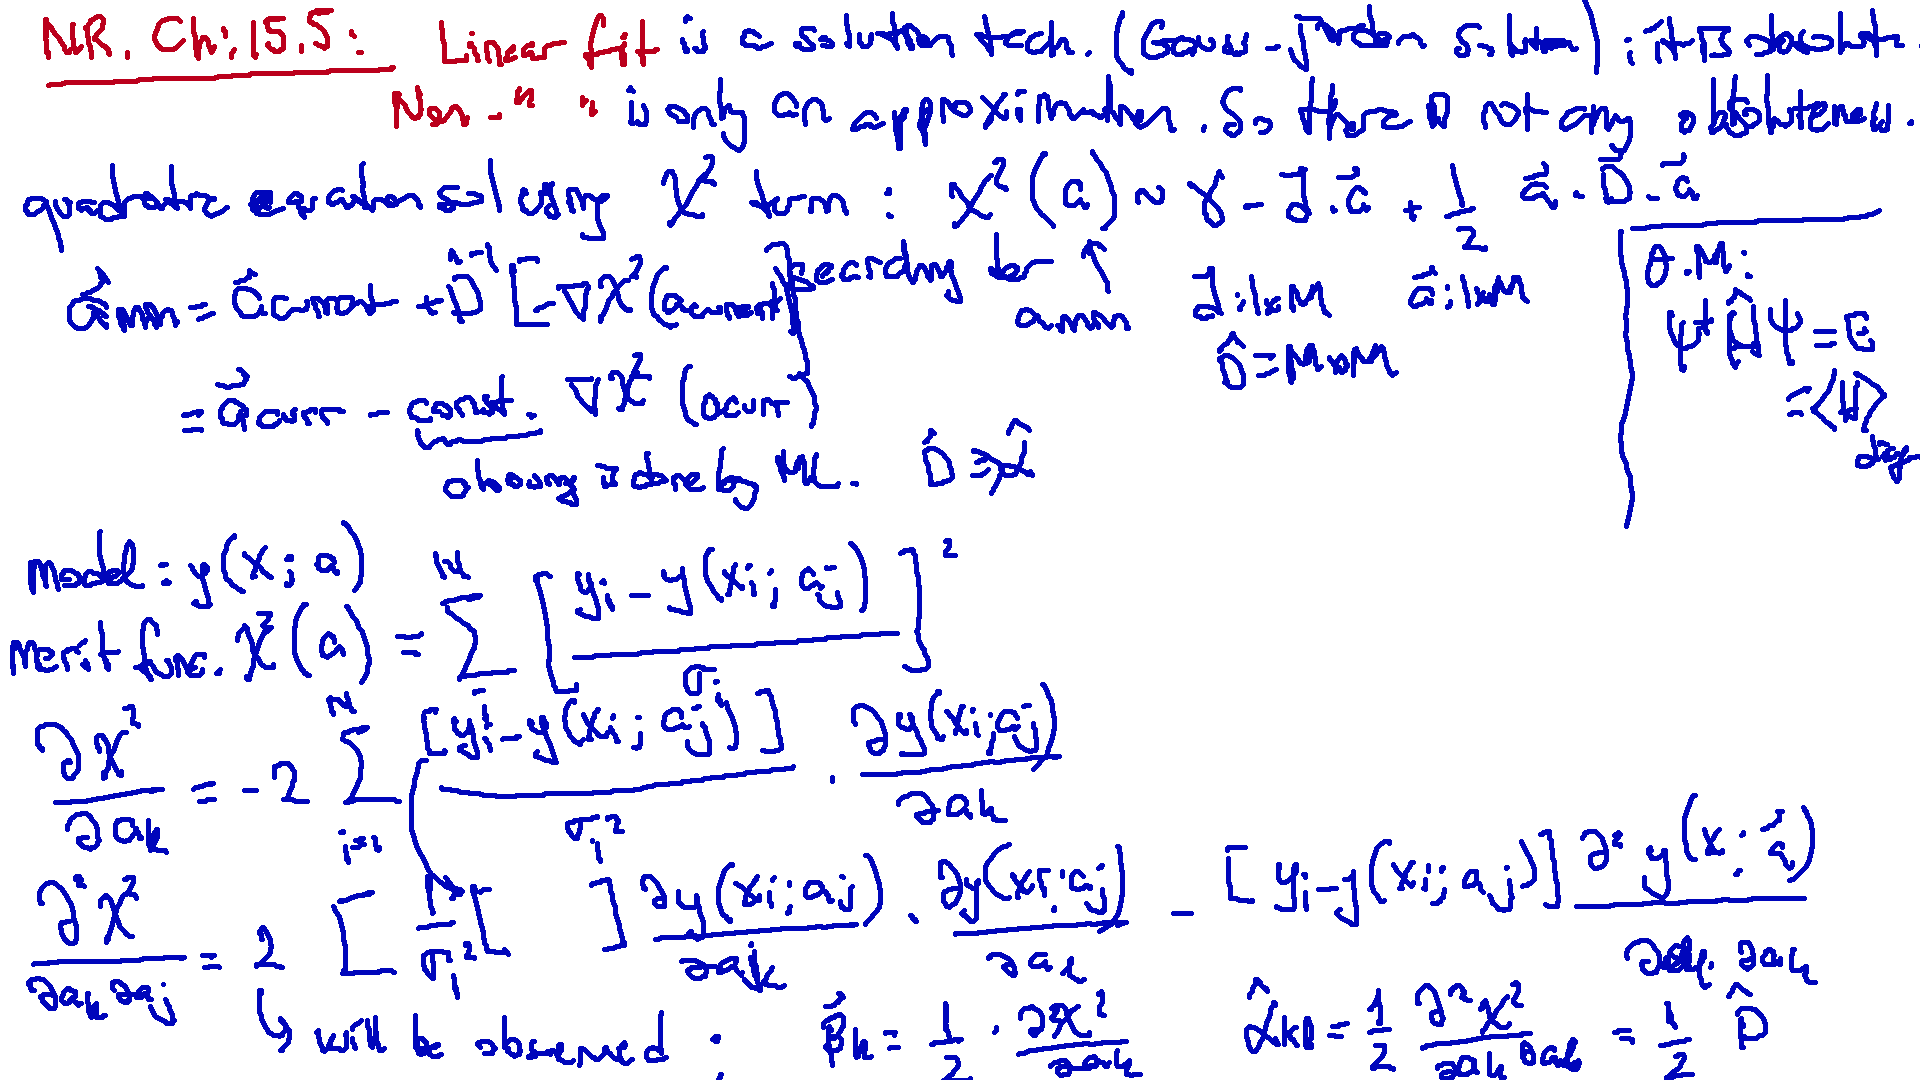 NR. Ch: 15.5: Linear fit is a solution tech. (Gauss-Jordan Solution); it is absolute.
Non- " " is only an approximation. So there is not any absoluteness.
quadratic equation sol using χ² term : χ²(a) ~ γ - d⃗ . a⃗ + 1/2 a⃗ . D⃗ . a⃗
searching for ↑ a min
a⃗ min = a⃗ current + D̂⁻¹ [-∇χ²(a current)]
d⃗ : 1xM a⃗ : 1xM
D̂ = MxM
= a⃗ curr - const. ∇χ² (a curr)
is done by ML. D̂ ⇒ α̂
Q.M:
ψ† Ĥ ψ = E
= <H>
model = y(x; a)
merit func. χ²(a) = Σ^N [ (yi - y(xi; aj)) / σi ]²
∂χ²/∂ak = -2 Σ_{i=1}^N [yi - y(xi; aj)] / σi² . ∂y(xi; aj)/∂ak
∂²χ²/∂ak∂aj = 2 [ 1/σi² [ ] ∂y(xi; aj)/∂ak . ∂y(xi; aj)/∂al - [yi - y(xi; aj)] ∂²y(x; a⃗)/∂al . ∂ak
↳ will be observed ; β⃗k = 1/2 . ∂χ²/∂ak α̂kl = 1/2 ∂²χ²/∂ak ∂al = 1/2 D̂